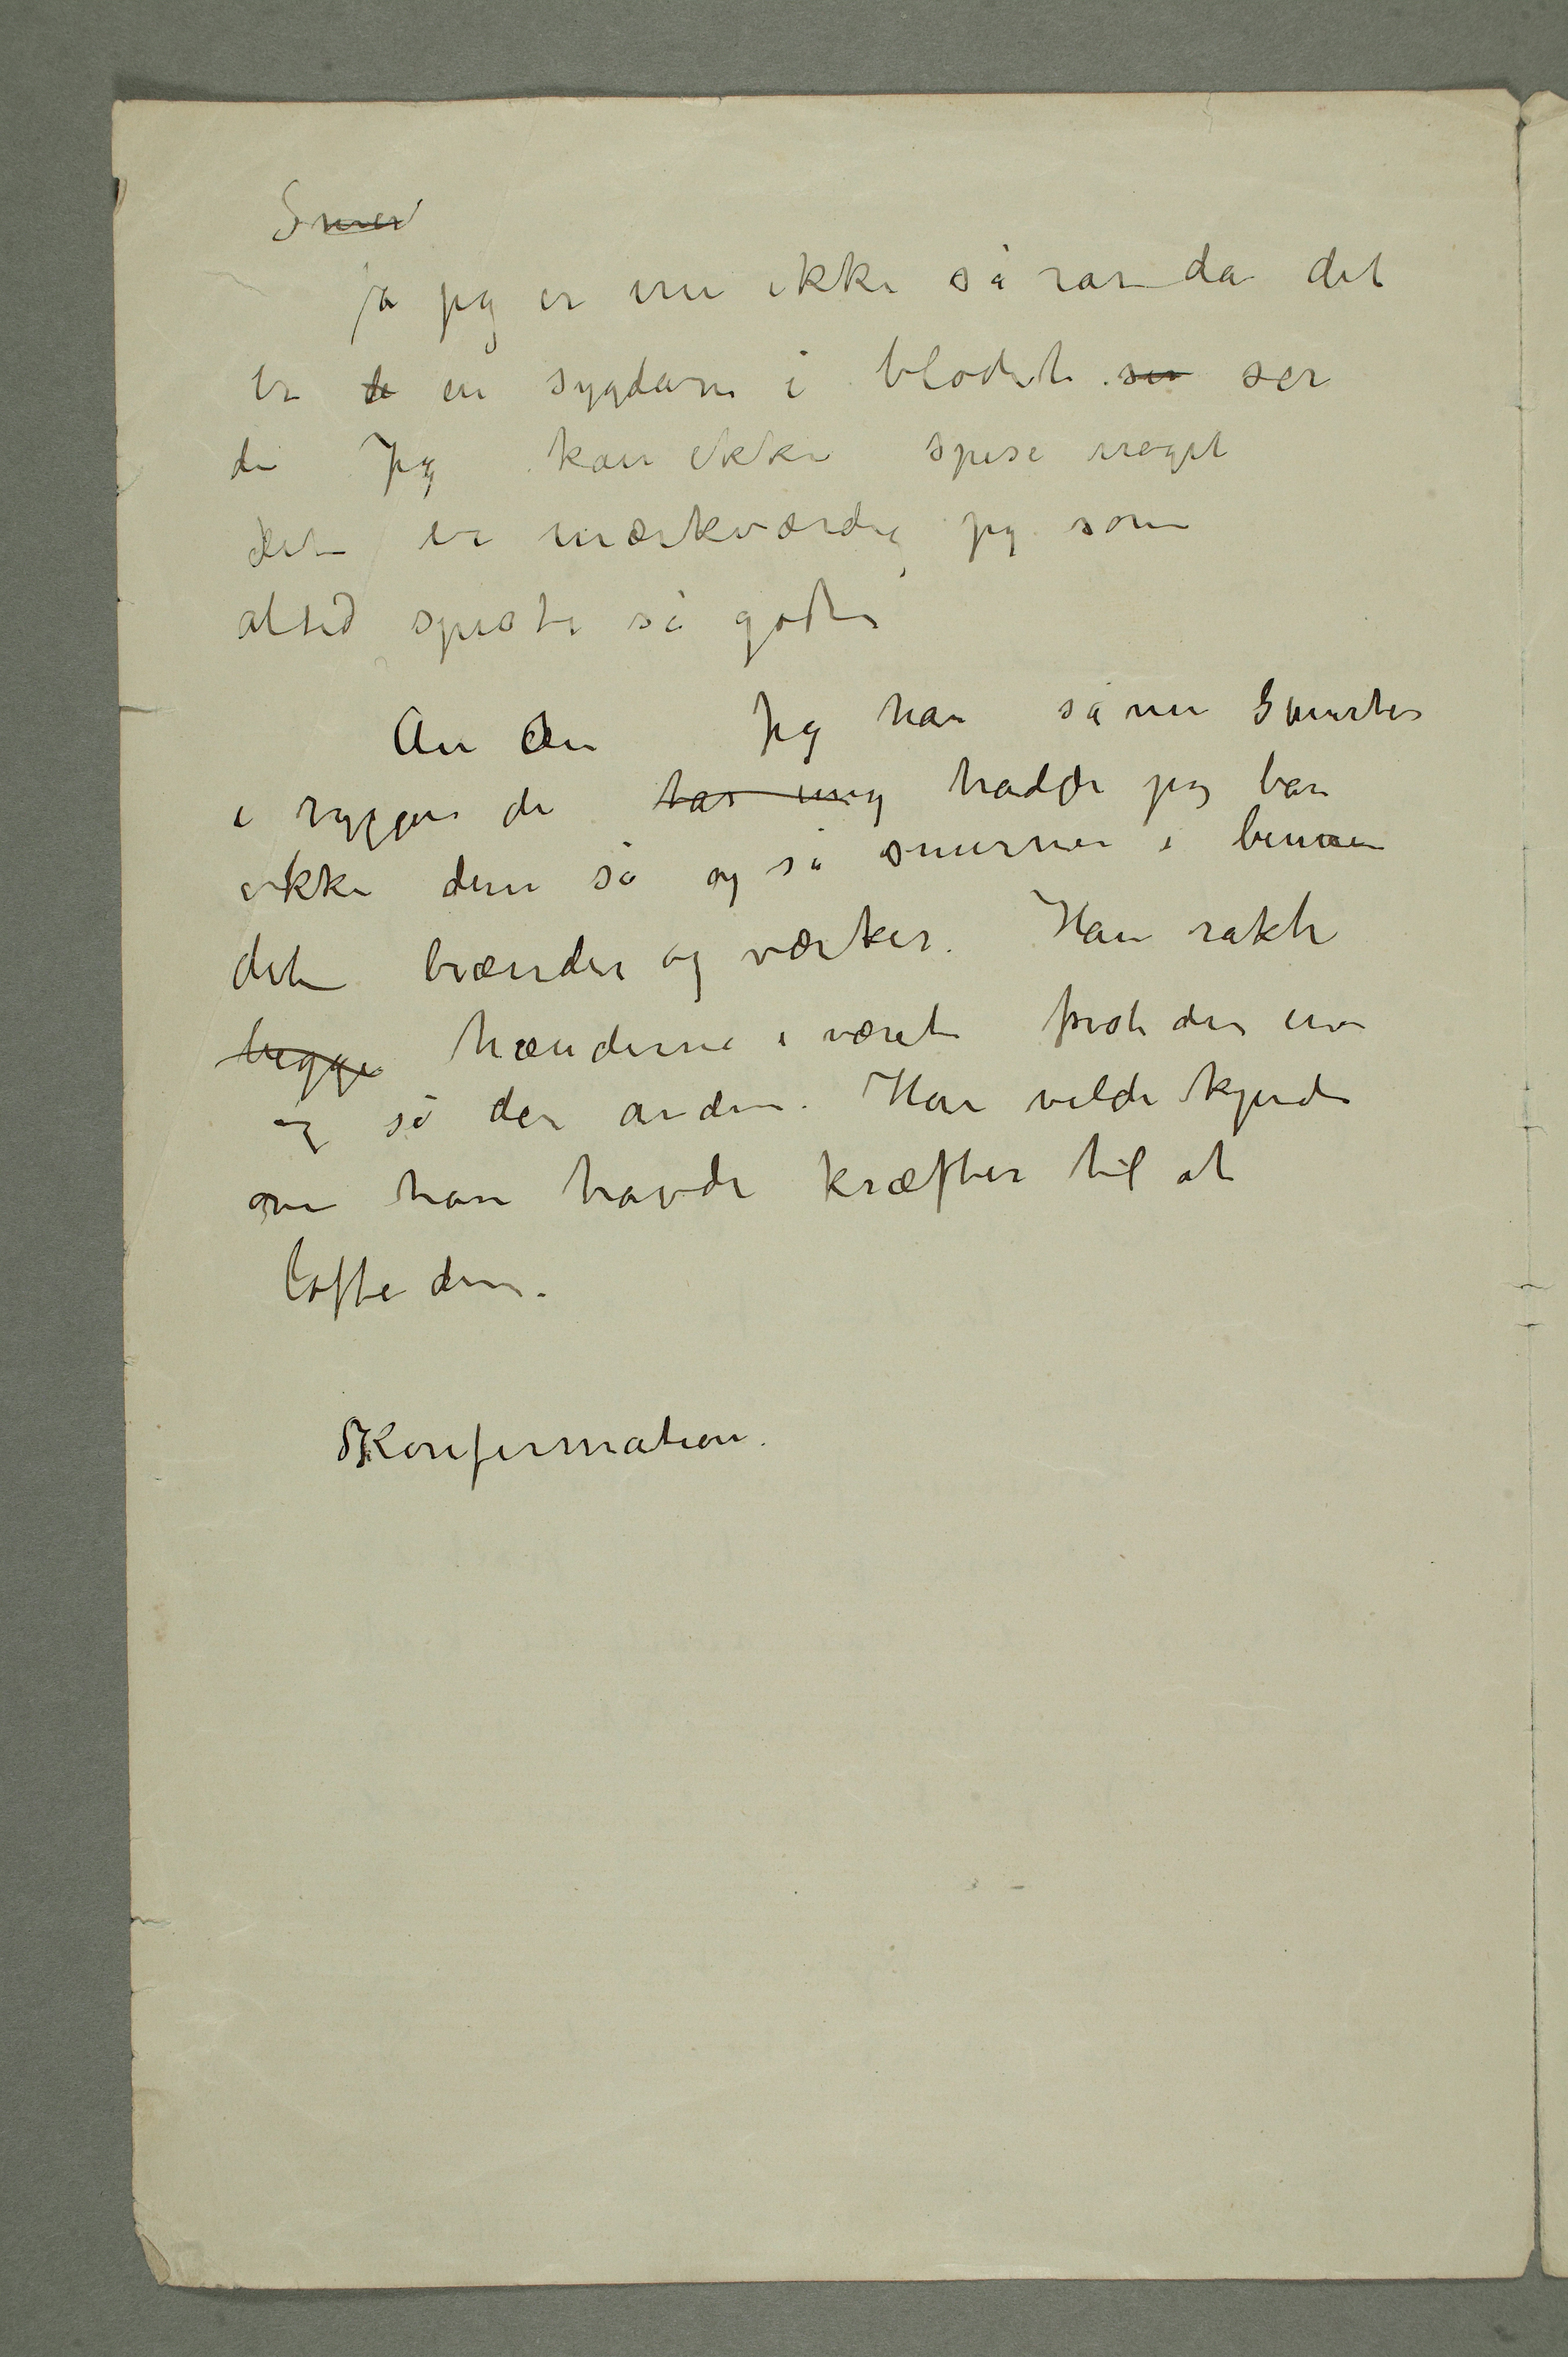 Smer
Ja jeg er nu ikke så rar da det
er de en sygdom i blodet ser ser
du Jeg kan ikke spise noget
det er mærkværdig jeg som
altid spiste så godt
Au Au Jeg har sånne Smerter
i ryggen du hadde jeg bare
ikke dem så og så smerner i benene
det brænder og værker. Han rakte
begge hænderne i været først den ene
og så den anden. Han vilde kjende
om han havde kræfter til at
løfte dem.
Konfirmation.